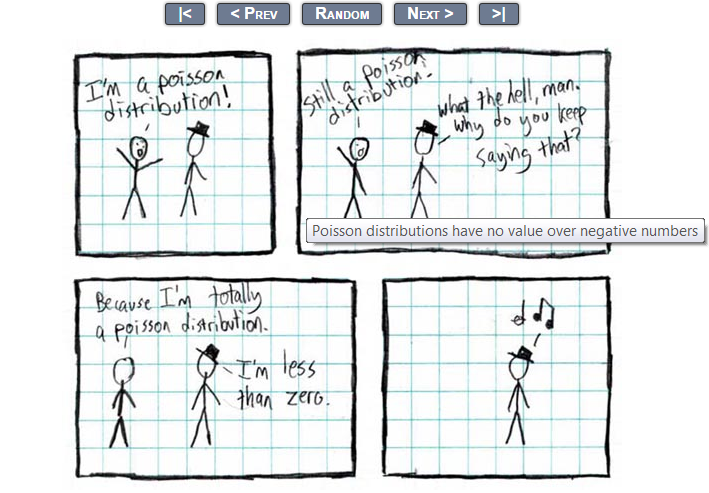 |<
< Prev
Random
Next >
>|
I'm a poisson
distribution!
Still a poisson
distribution.
What the hell, man.
Why do you keep
saying that?
Poisson distributions have no value over negative numbers
Because I'm totally
a poisson distribution.
I'm less
than zero.